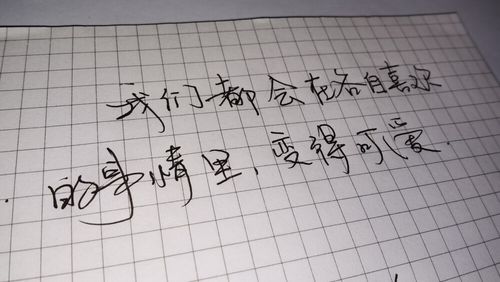 我们都会在各自喜欢
的事情里，变得可爱.